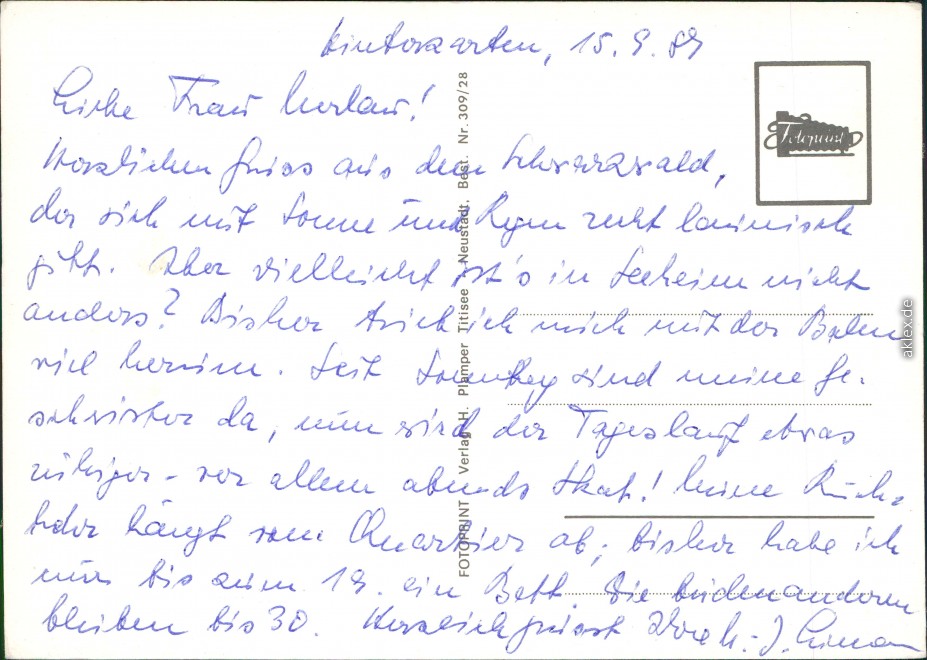 Hinterzarten, 15.9.89
Liebe Frau !
Herzlichen Gruss aus dem Schwarzwald,
der sich mit Sonne und Regen recht launisch
gibt. Aber vielleicht ist's in Seeheim nicht
anders? Bisher trieb ich mich mit der Bahn
viel herum. Seit Sonntag sind meine Ge-
schwister da, nun wird der Tageslauf etwas
ruhiger - vor allem abends Skat! Meine Rück-
kehr hängt vom Quartier ab; bisher habe ich
nur bis zum 19. ein Bett. Die beiden anderen
bleiben bis 30. Herzlich grüsst Ihre H.-J.
FOTOPRINT Verlag H. Plamper Titisee - Neustadt. Best. Nr. 309/28
Fotoprint
aklex.de